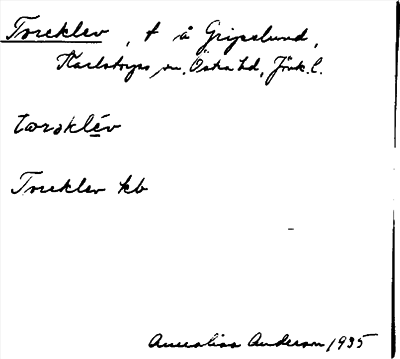 Toreklev, t å Gripslund,
Karlstorps sn. Östra hd, Jönk. l.
toraklév
Toreklev kb
Annalisa Anderson 1935